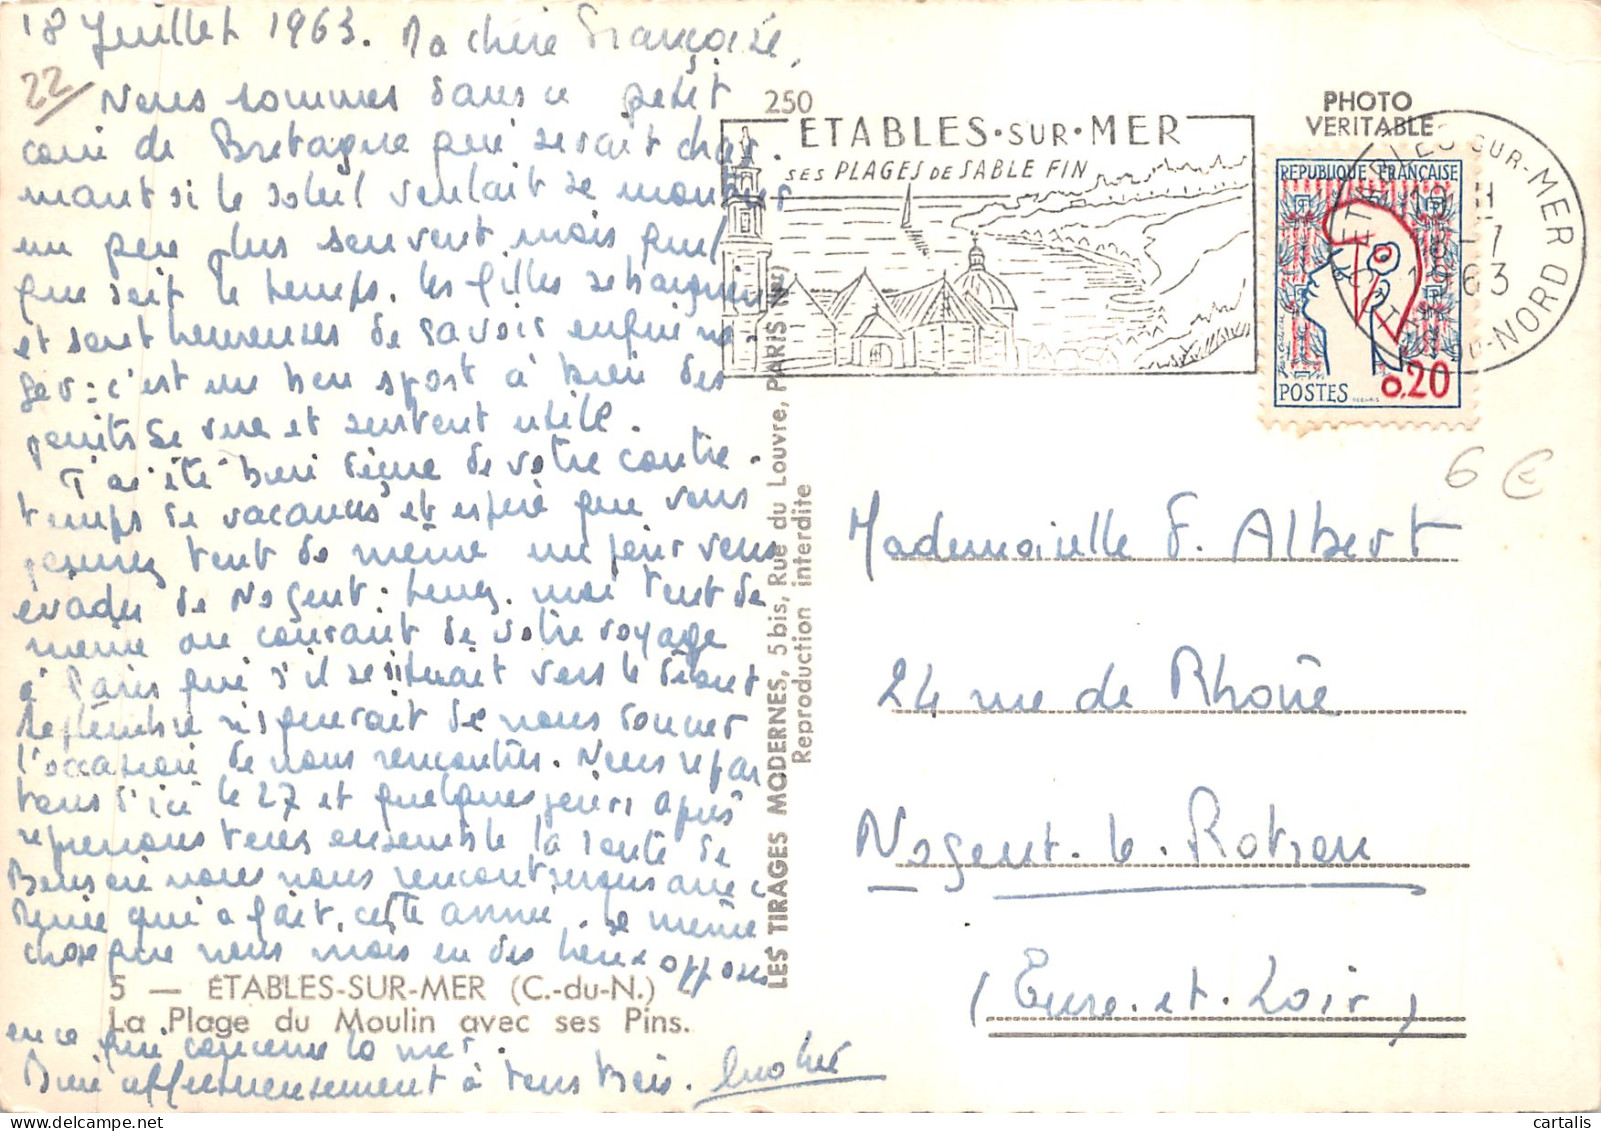 18 Juillet 1963. Ma chère Françoise,
22
Nous sommes dans ce petit
coin de Bretagne qui serait char-
mant si le soleil voulait se montrer
un peu plus souvent mais quel
que soit le temps, les filles se baignent
et sont heureuses de savoir enfin na-
ger : c'est un bon sport à bien des
points de vue et souvent utile.
J'ai été bien déçue de votre contre-
temps de vacances et espère que vous
pourrez tout de même un jour vous
évader de Nogent : tenez-moi tout de
même au courant de votre voyage
à Paris qui s'il se situait vers le début
septembre risquerait de nous donner
l'occasion de nous rencontrer. Nous repar-
tons d'ici le 27 et quelques jours après
reprenons tous ensemble la route de
nous nous rencontrerons avec
qui a fait, cette année, le même
chose que nous mais en des lieux opposés
en ce qui concerne la mer.
Bien affectueusement à tous trois.
5 — ÉTABLES-SUR-MER (C.-du-N.)
La Plage du Moulin avec ses Pins.
LES TIRAGES MODERNES, 5 bis, Rue du Louvre, PARIS (2e)
Reproduction interdite
250
ETABLES•SUR•MER
SES PLAGES DE SABLE FIN
PHOTO
VERITABLE
ETABLES-SUR-MER
18-7
1963
COTES-DU-NORD
REPUBLIQUE FRANÇAISE
POSTES
0,20
6 €
Mademoiselle F. Albert
24 rue de Rhône
Nogent-le-Rotrou
(Eure-et-Loir)
cartalis